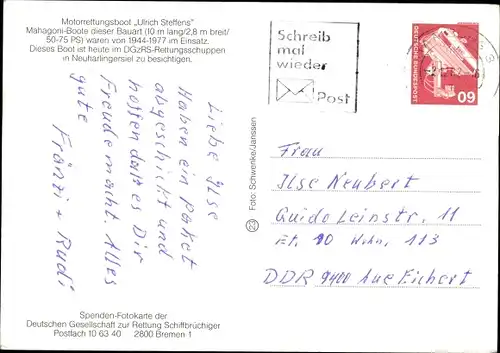 Motorrettungsboot „Ulrich Steffens"
Mahagoni-Boote dieser Bauart (10 m lang/2,8 m breit/
50-75 PS) waren von 1944-1977 im Einsatz.
Dieses Boot ist heute im DGzRS-Rettungsschuppen
in Neuharlingersiel zu besichtigen.
Liebe Ilse
Haben ein Paket
abgeschickt und
hoffen daß es Dir
Freude macht. Alles
gute
Fränzi + Rudi
Spenden-Fotokarte der
Deutschen Gesellschaft zur Rettung Schiffbrüchiger
Postfach 10 63 40 2800 Bremen 1
23 Foto: Schwenke/Janssen
Schreib
mal
wieder
Post
DEUTSCHE BUNDESPOST
60
Frau
Ilse Neubert
Guido Leinstr. 11
Et. 10 Wohn. 113
DDR 9400 Aue Eichert